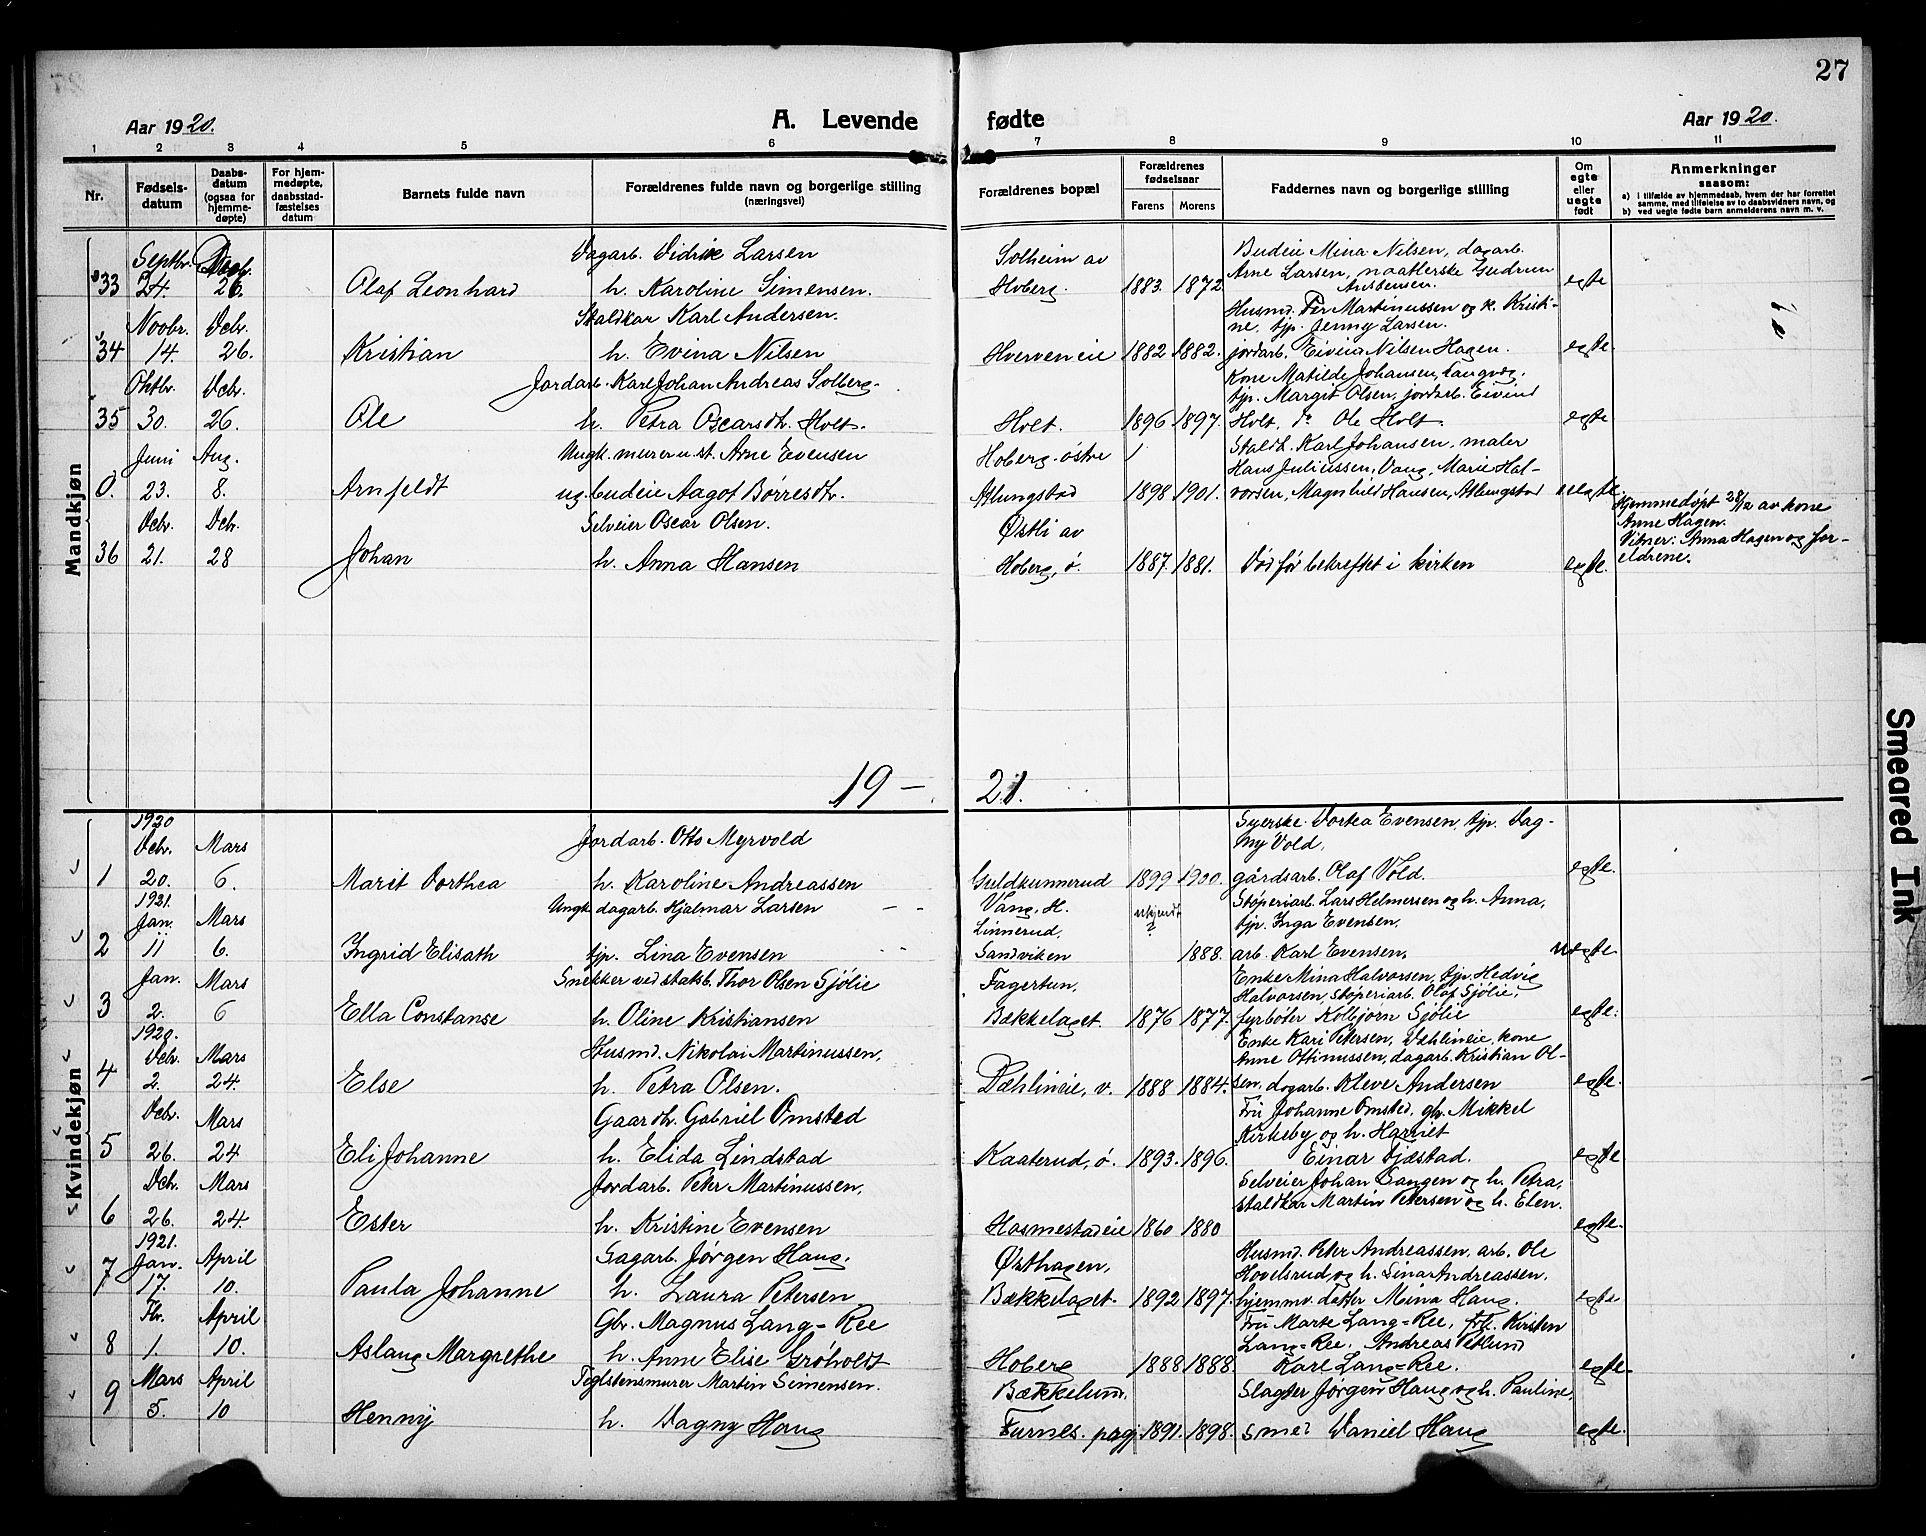 27
Aar 1920.
A. Levende fødte
Aar 1920.
1 2 3 4 5 6 7 8 9 10 11
Nr.
Fødselsdatum
Daabsdatum (ogsaa for hjemmedøpte)
For hjemmedøpte, daabsstadfæstelses datum
Barnets fulde navn
Forældrenes fulde navn og borgerlige stilling (næringsvei)
Forældrenes bopæl
Forældrenes fødselsaar
Farens Morens
Faddernes navn og borgerlige stilling
Om egte eller uegte født
Anmerkninger
saasom:
a) i tilfælde av hjemmedaab, hvem der har forrettet samme, med tilføielse av to daabsvidners navn, og
b) ved uegte fødte barn anmelderens navn m. v.
Mandkjøn
Septbr. Decbr. Dagarb. Vidrik Larsen Solheim av Budeie Mina Nilsen, dagarb.
Arne Larsen, naatlerske Gudrun
33 24. 26. Olaf Leonhard h. Karoline Simensen. Hoberg. 1883. 1872 egte
Novbr. Dcbr. Staldkar Karl Andersen. Husmd. Per Martinussen og k. Kristine, tjp. Jenny Larsen.
34 14. 26. Kristian h. Evina Nilsen Hverveneie 1882 1882. jordarb. Eivind Nilsen Hagen. egte.
Oktbr. Dcbr. Jordarb. Karl Johan Andreas Solberg. Kone Matilde Johansen,
tjp. Margit Olsen, jordarb. Eivind
35 30. 26. Ole h. Petra Oscarsdtr. Holt. Holt. 1896 1897. Holt, do Ole Holt. egte
Juni Aug. Ungk. murer u. st. Arne Evensen Hoberg østre Staldk. Karl Johansen, maler
Hans Juliussen, Vang, Marie Hal-
0. 23. 8. Arnfeldt ug. budeie Aagot Børresdtr. Atlungstad 1898 1901. vorsen, Magnhild Hansen, Atlungstad uegte.
Dcbr. Dcbr. Selveier Oscar Olsen. Østli av Hjemmedøpt 28/12 av kone
Anne Hagen.
Vitner: Anna Hagen og for-
36 21. 28 Johan h. Anna Hansen Hoberg, ø. 1887. 1881. Død før bekreftet i kirken egte. eldrene.
19 – 21.
Kvindekjøn
1920
Dcbr. Mars Jordarb. Otto Myrvold Syerske Dortea Evensen, tjp. Dag-
ny Vold,
1 20. 6. Marit Dorthea h. Karoline Andreassen Guldkunnerud 1899 1900. gårdsarb. Olaf Vold. egte.
1921.
Jan. Mars Ungk. dagarb. Hjalmar Larsen Vang, H. ukjendt Støperiarb. Lars Helmersen og h. Anna,
Linnerud. ? tjp. Inga Evensen.
2 11 6. Ingrid Elisath tjp. Lina Evensen Sandviken 1888. arb. Karl Evensen, uegte
Jan. Mars Snekker ved statsb. Thor Olsen Sjølie Fagertun, Enke Mina Halvorsen, tjp. Hedvig
Halvorsen, støperiarb. Olaf Sjølie,
3 2. 6 Ella Constanse h. Oline Kristiansen Bækkelaget. 1876 1877. fyrbøter Kolbjørn Sjølie egte.
1920.
Dcbr. Mars Husmd. Nikolai Martinussen, Enke Kari Petersen, Dæhlineie, kone
Anne Ottinussen, dagarb. Kristian Ol-
4 2. 24. Else h. Petra Olsen. Dæhlineie, v. 1888 1884. sen, dagarb. Kleve Andersen egte.
Dcbr. Mars Gaardbr. Gabriel Omsted Fru Johanne Omsted, gbr. Mikkel
Kirkeby og h. Harriet
5 26. 24 Eli Johanne h. Elida Lindstad Kaaterud, ø. 1893. 1896. Einar Tjæstad. egte
Dcbr. Mars Jordarb. Peter Martinussen, Selveier Johan Dangen og h. Petra,
staldkar Martin Petersen og h. Elen.
6 26. 24. Ester h. Kristine Evensen Hosmestadeie 1860 1880 egte.
1921.
Jan. April Sagarb. Jørgen Haug. Østhagen, Husmd. Peter Andreassen, arb. Ole
Hovelsrud, og h. Sina Andreassen.
7 17. 10. Paula Johanne h. Laura Petersen Bækkelaget. 1892 1897. hjemmv. datter Mina Haug. egte
Fbr. April Gbr. Magnus Lang-Ree Fru Marte Lang-Ree, frk. Kirsten
Lang-Ree, Andreas
8 1. 10. Aslaug Margrethe h. Anne Elise Grøholdt Hoberg 1888 1888. Karl Lang-Ree. egte.
Mars April Teglstensmurer Martin Simensen. Bækkelund, Slagter Jørgen Haug og h. Pauline,
9 5. 10 Henny h. Dagny Haug Furnes. prgj. 1891. 1898. smed Daniel Haug egte.
Smeared Ink